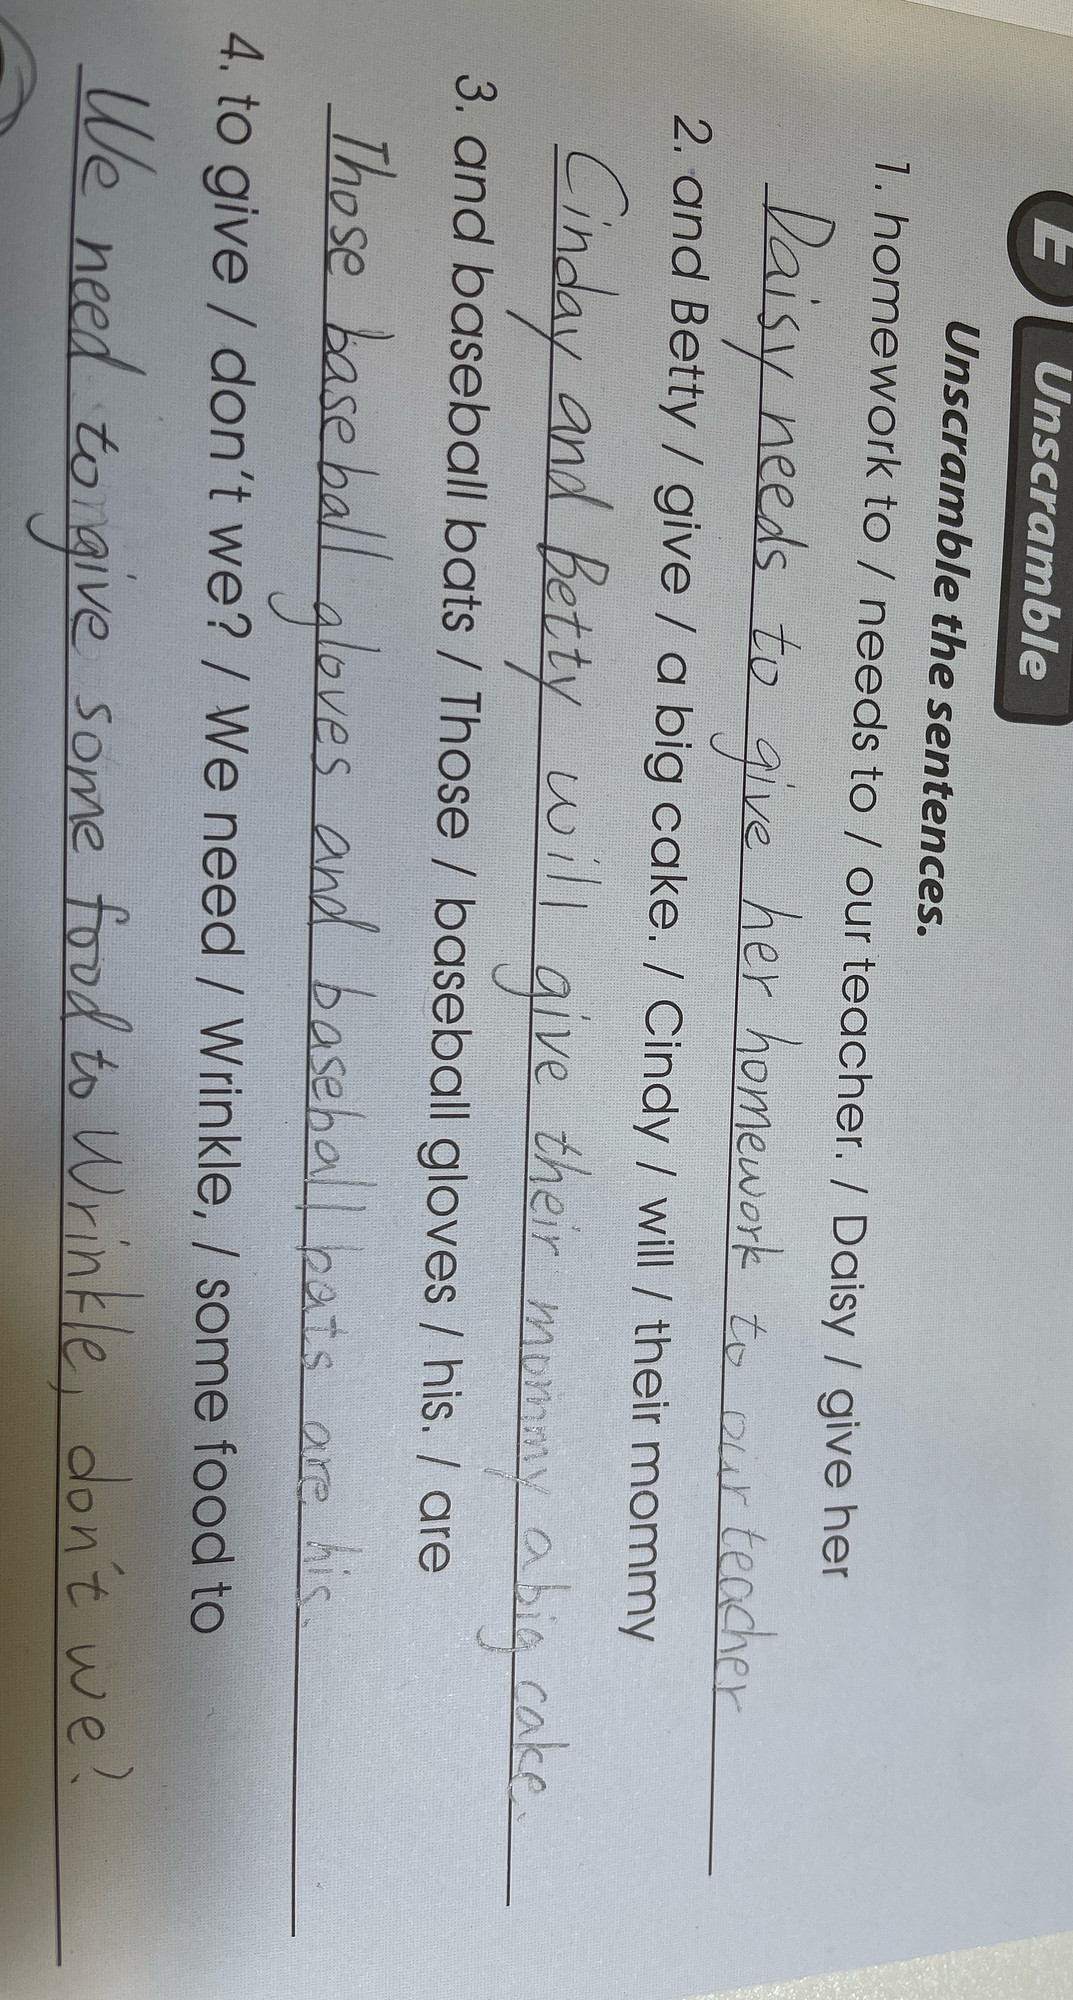 E Unscramble
Unscramble the sentences.
1. homework to / needs to / our teacher. / Daisy / give her
Daisy needs to give her homework to our teacher
2. and Betty / give / a big cake. / Cindy / will / their mommy
Cinday and Betty will give their mommy a big cake.
3. and baseball bats / Those / baseball gloves / his. / are
Those baseball gloves and baseball bats are his.
4. to give / don't we? / We need / Wrinkle, / some food to
We need to give some food to Wrinkle, don't we?